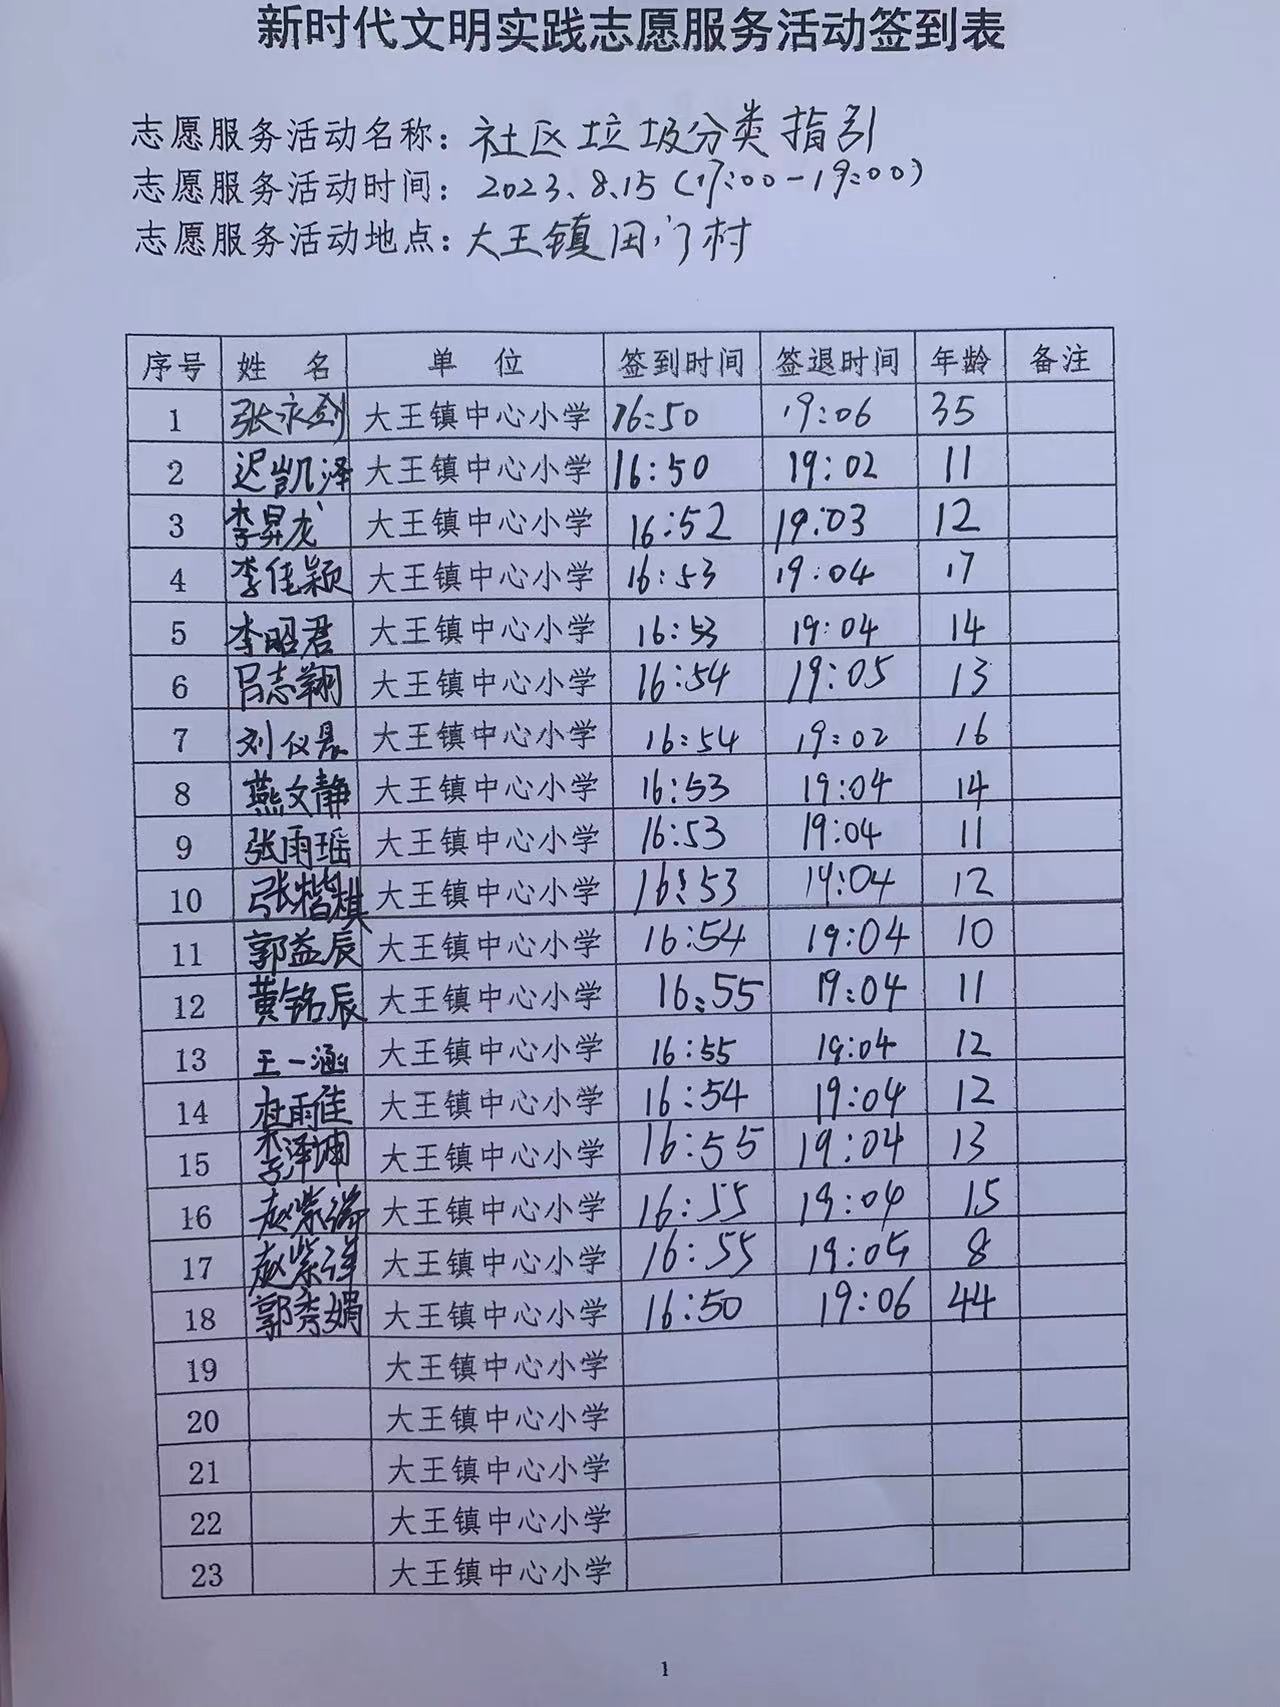 新时代文明实践志愿服务活动签到表
志愿服务活动名称：社区垃圾分类指引
志愿服务活动时间：2023.8.15（17:00-19:00）
志愿服务活动地点：大王镇田门村
序号 姓 名 单 位 签到时间 签退时间 年龄 备注
1 张永剑 大王镇中心小学 16:50 19:06 35
2 迟凯泽 大王镇中心小学 16:50 19:02 11
3 李昇龙 大王镇中心小学 16:52 19:03 12
4 李佳颖 大王镇中心小学 16:53 19:04 17
5 李昭君 大王镇中心小学 16:53 19:04 14
6 吕志翔 大王镇中心小学 16:54 19:05 13
7 刘仪 大王镇中心小学 16:54 19:02 16
8 燕文静 大王镇中心小学 16:53 19:04 14
9 张雨瑶 大王镇中心小学 16:53 19:04 11
10 张楷棋 大王镇中心小学 16:53 19:04 12
11 郭益辰 大王镇中心小学 16:54 19:04 10
12 黄铭辰 大王镇中心小学 16:55 19:04 11
13 王一涵 大王镇中心小学 16:55 19:04 12
14 杜雨佳 大王镇中心小学 16:54 19:04 12
15 李泽坤 大王镇中心小学 16:55 19:04 13
16 赵紫 大王镇中心小学 16:55 19:04 15
17 赵紫洋 大王镇中心小学 16:55 19:05 8
18 郭秀娟 大王镇中心小学 16:50 19:06 44
19 大王镇中心小学
20 大王镇中心小学
21 大王镇中心小学
22 大王镇中心小学
23 大王镇中心小学
1